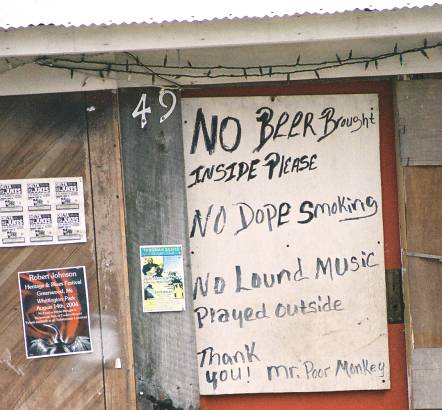 49
NO BEER Brought
INSIDE PLEASE
NO DOPE Smoking
NO Lound Music
Played outside
Thank
you! Mr. Poor Monkey
Robert Johnson
Heritage & Blues Festival
Greenwood, Ms
Whittington Park
August 14th, 2004